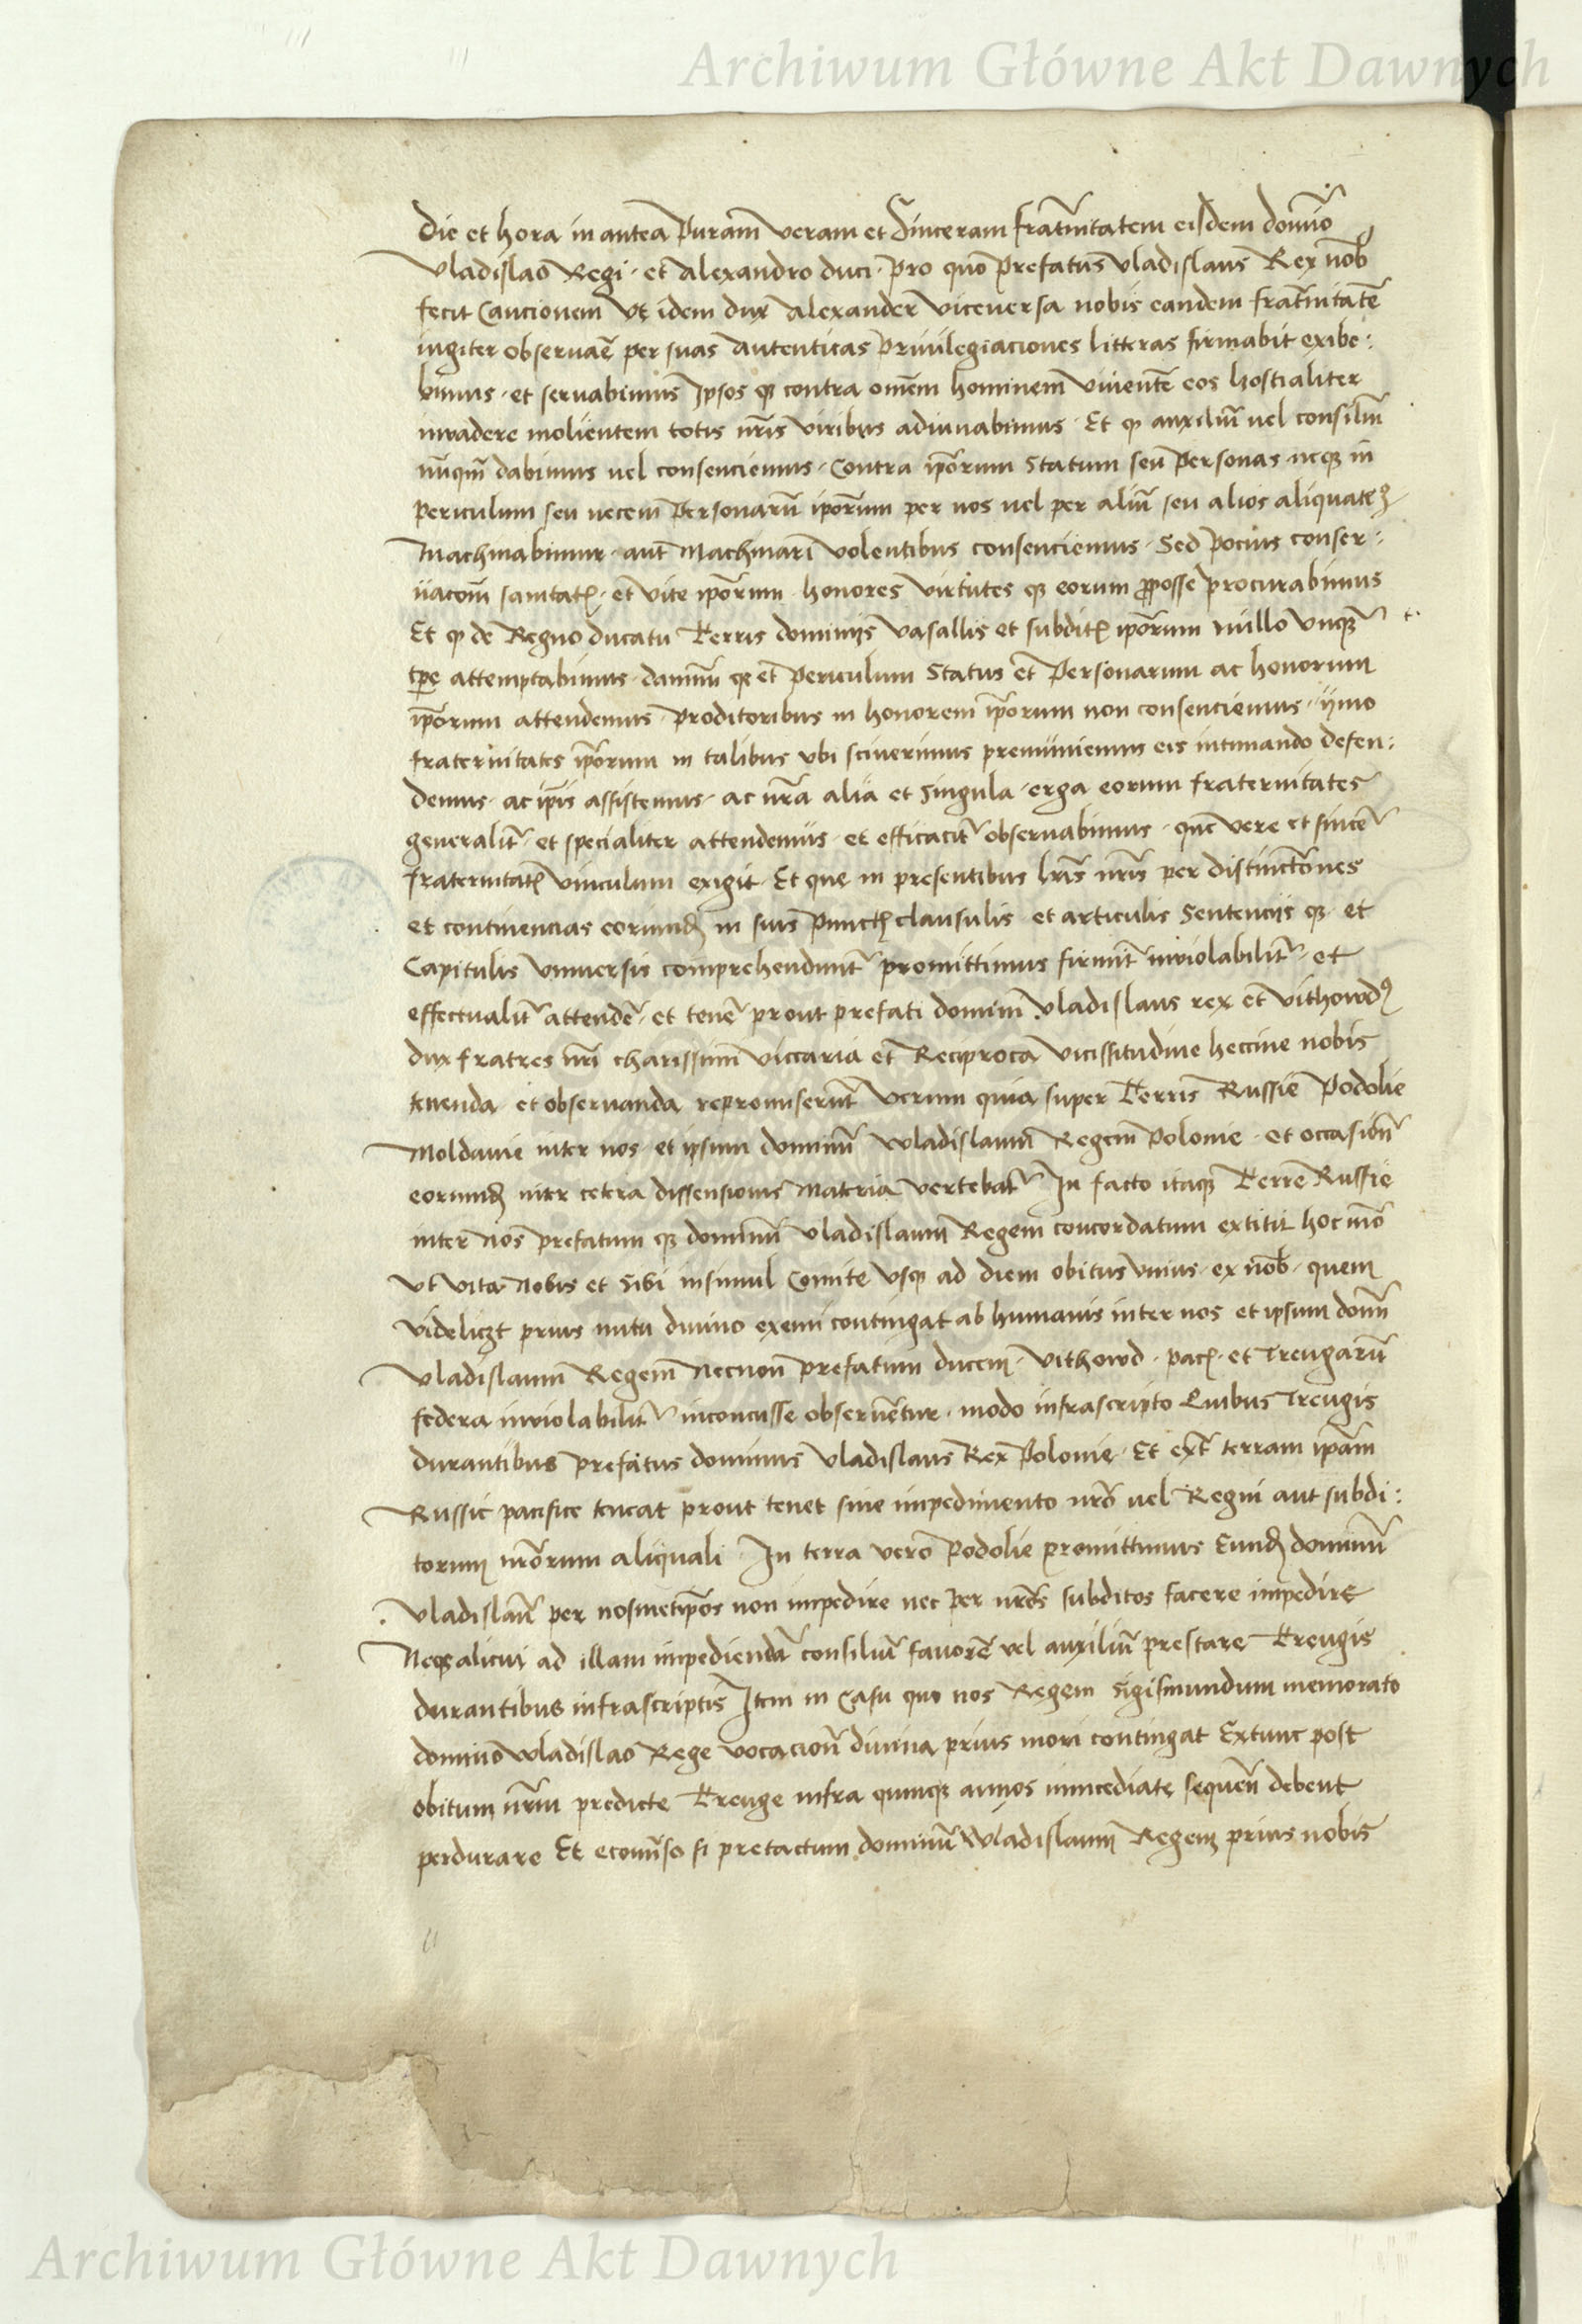 Archiwum Główne Akt Dawnych
Die et hora in antea Puram veram et Sinceram frat̃nitatem eisdem domĩo
Vladislao Regi · et Alexandro duci · pro quo prefatus Vladislaus Rex nob̃
fecit Caucionem Vt idem dux Alexander viceversa nobis eandem frat̃nitatẽ
iugiter observaẽ per suas Autenticas Privilegiaciones litteras firmabit exibe:
bimus · et servabimus Ipsos qꝫ contra omẽm hominem viventẽ eos hostialiter
invadere molientem totis nr̃is viribus adiuvabimus · Et ꝙ auxiliũ vel consiliũ
nũqm̃ dabimus vel consenciemus · Contra ip̃orum Statum seu Personas · neqꝫ in
periculum seu necem Personarũ ip̃orum per nos vel per aliũ seu alios aliquateꝫ
Machinabimur · aut Machinari volentibus consenciemus · Sed Pocius conser:
vacom̃ sanitatꝭ · et vite ip̃orum · honores virtutes qꝫ eorum ꝓposse procurabimus
Et ꝙ de Regno ducatu Terris dominijs vasallis et subditꝭ ip̃orum nullo vnqꝫ t·
tp̃e attemptabimus · damnũ qꝫ et Periculum Status et Personarum ac honorum
ip̃orum attendemus · Proditoribus in honorem ip̃orum non consenciemus · ymo
fraternitates ip̃orum in talibus vbi sciverimus premuniemus eis intimando defen:
demus · ac ip̃is assistemus · ac nr̃a alia et Singula · erga eorum fraternitates
generalit̃ · et specialiter attendemus · et efficacit̃ observabimus · que vere et since᷑
fraternitatꝭ vinculum exigit · Et que in presentibus lr̃is nr̃is per distinctiones
et continencias eorumdꝫ in suis Punctꝭ clausulis et articulis Sentencijs qꝫ et
Capitulis vniversis comprehendunt᷑ promittimus firmit̃ inviolabilit̃ · et
effectualit̃ attendẽ · et tenẽ prout prefati dominũ Vladislaus rex et vithowdꝰ
dux fratres nr̃i charissimi viccaria et Reciproca vicissitudine heccine nobis
tenenda et observanda repromiserunt Verum quia super Terris Russie Podolie
Moldavie inter nos et ipsum dominũ Wladislaum Regem Polonie · et occasiõn
eorumdꝫ inter cetera dissensionis Materia vertebat᷑ In facto itaqꝫ Terre Russie
inter nos prefatum qꝫ dominũ Vladislaum Regem concordatum extitit hoc mõ
Vt vita Nobis et Sibi insimul Comite vsqꝫ ad diem obitus vnius · ex nob̃ · quem
videliczt prius nutu divino eximi contingat ab humanis inter nos et ipsum domñ
Vladislaum Regem Necnon prefatum ducem · Vithowd · pacꝭ · et Treugarũ
federa inviolabilit̃ inconcusse observẽtur · modo infrascripto Quibus Treugis
durantibus prefatus dominus Vladislaus Rex Polonie · Et ext̃ terram ip̃am
Russie pacifice teneat prout tenet sine impedimento nr̃o vel Regni aut subdi:
torum nr̃orum aliquali · In terra vero Podolie promittimus Eundꝫ dominũ
Vladislaũ per nosmetip̃os non impedire nec per nr̃os subditos facere impedire
Neqꝫ alicui ad illam impediendã consiliũ favorẽ vel auxiliũ prestare Treugis
durantibus infrascriptis Item in Casu quo nos Regem Sigismundum memorato
domino Wladislao Rege vocacioñ divina prius mori contingat Extunc post
obitum nr̃m predicte Treuge infra quinqꝫ annos immediate sequeñ debent
perdurare Et econũso si pretactum dominũ Wladislaum Regem prius nobis
Archiwum Główne Akt Dawnych